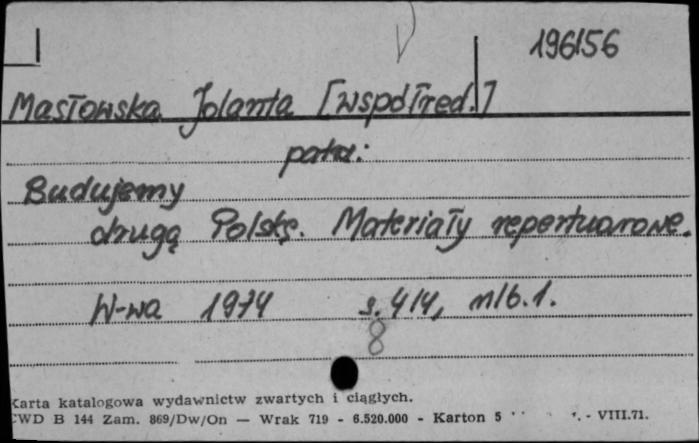 196156
Masłowska Jolanta [współred.]
patrz:
Budujemy
drugą Polskę. Materiały repertuarowe.
W-wa 1974 s. 414, nlb. 1.
8
Karta katalogowa wydawnictw zwartych i ciągłych.
CWD B 144 Zam. 869/Dw/On — Wrak 719 - 6.520.000 - Karton 5 - VIII.71.